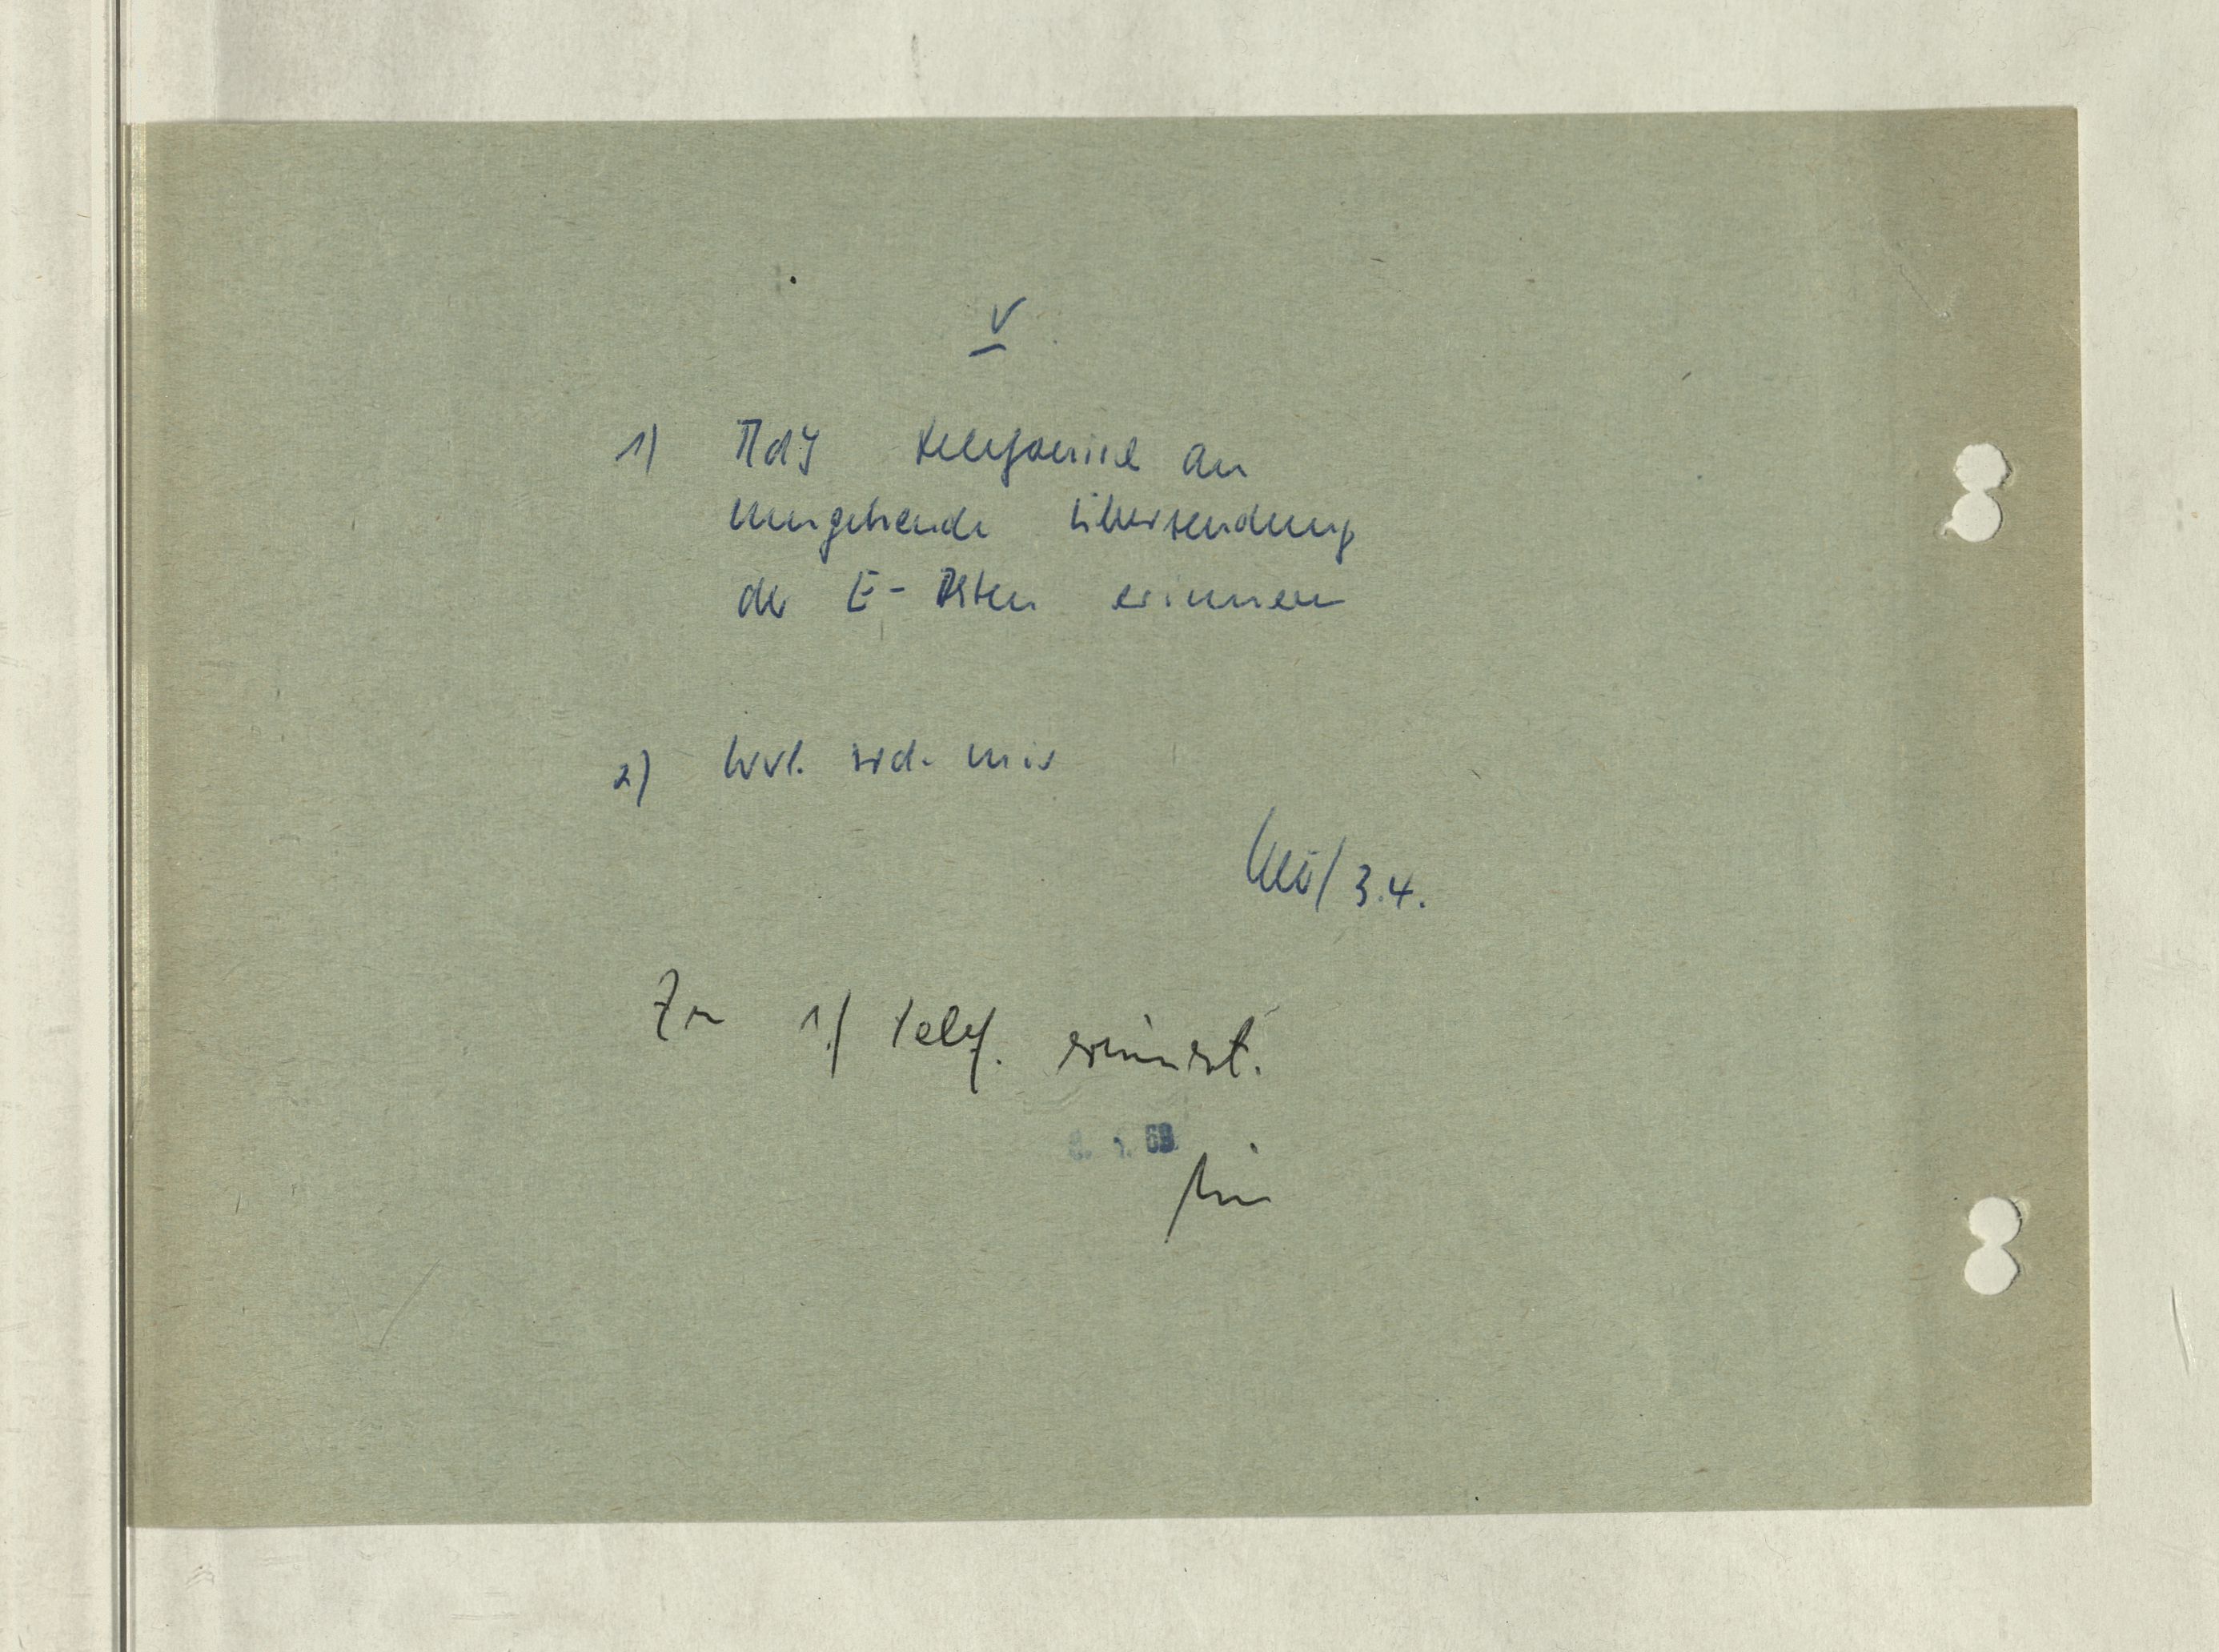 V
1) MdJ telefonisch an
umgehende Übersendung
der E-Akten erinnern
2) Wvl. sod. mir
3.4.
Zu 1./ telef. erinnert.